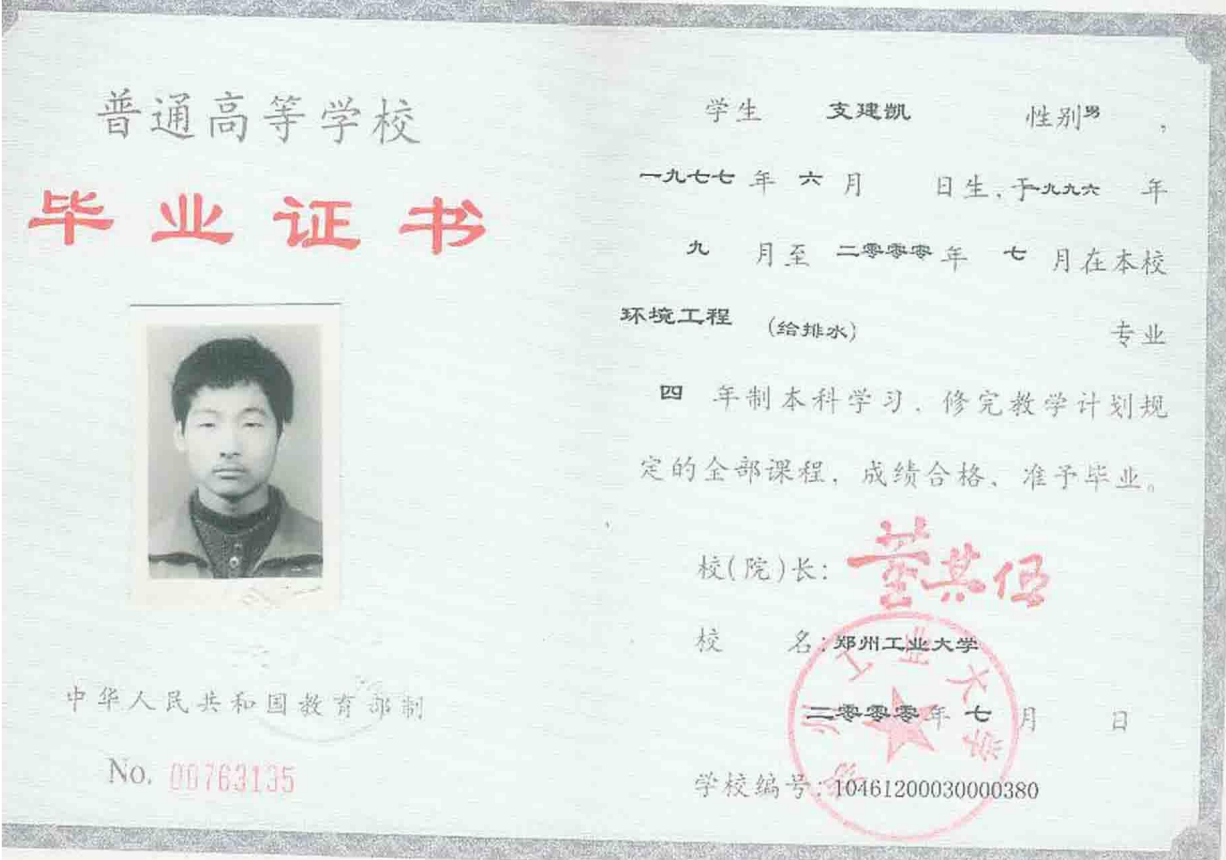 普通高等学校
毕业证书
中华人民共和国教育部制
No. 00763135
学生 支建凯 性别男,
一九七七年六月 日生,于一九九六年
九月至二零零零年七月在本校
环境工程 (给排水) 专业
四年制本科学习,修完教学计划规
定的全部课程,成绩合格,准予毕业。
校(院)长:
校 名:郑州工业大学
二零零零年七月 日
学校编号:10461200030000380
郑州工业大学